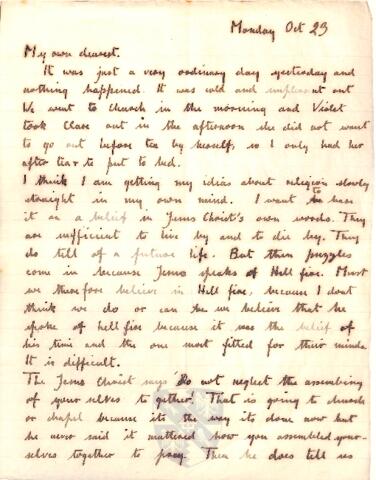 Monday Oct 23
My own dearest.
It was just a very ordinary day yesterday and
nothing happened. It was cold and unpleasant out
We went to Church in the morning and Violet
took Clare out in the afternoon she did not want
to go out before tea by herself, so I only had her
after tea to put to bed.
I think I am getting my ideas about religion slowly
straight in my own mind. I want to base
it on a belief in Jesus Christ's own words. They
are sufficient to live by and to die by. They
do tell of a future life. But then puzzles
come in because Jesus speaks of Hell fire. Must
we therefore believe in Hell fire, because I dont
think we do or can we believe that he
spoke of hell fire because it was the belief of
his time and the one most fitted for their minds
It is difficult.
The Jesus Christ says 'Do not neglect the assembling
of yourselves together'. That is going to church
or chapel because its the way its done now but
he never said it mattered how you assembled your-
selves together to pray. Then he does tell us